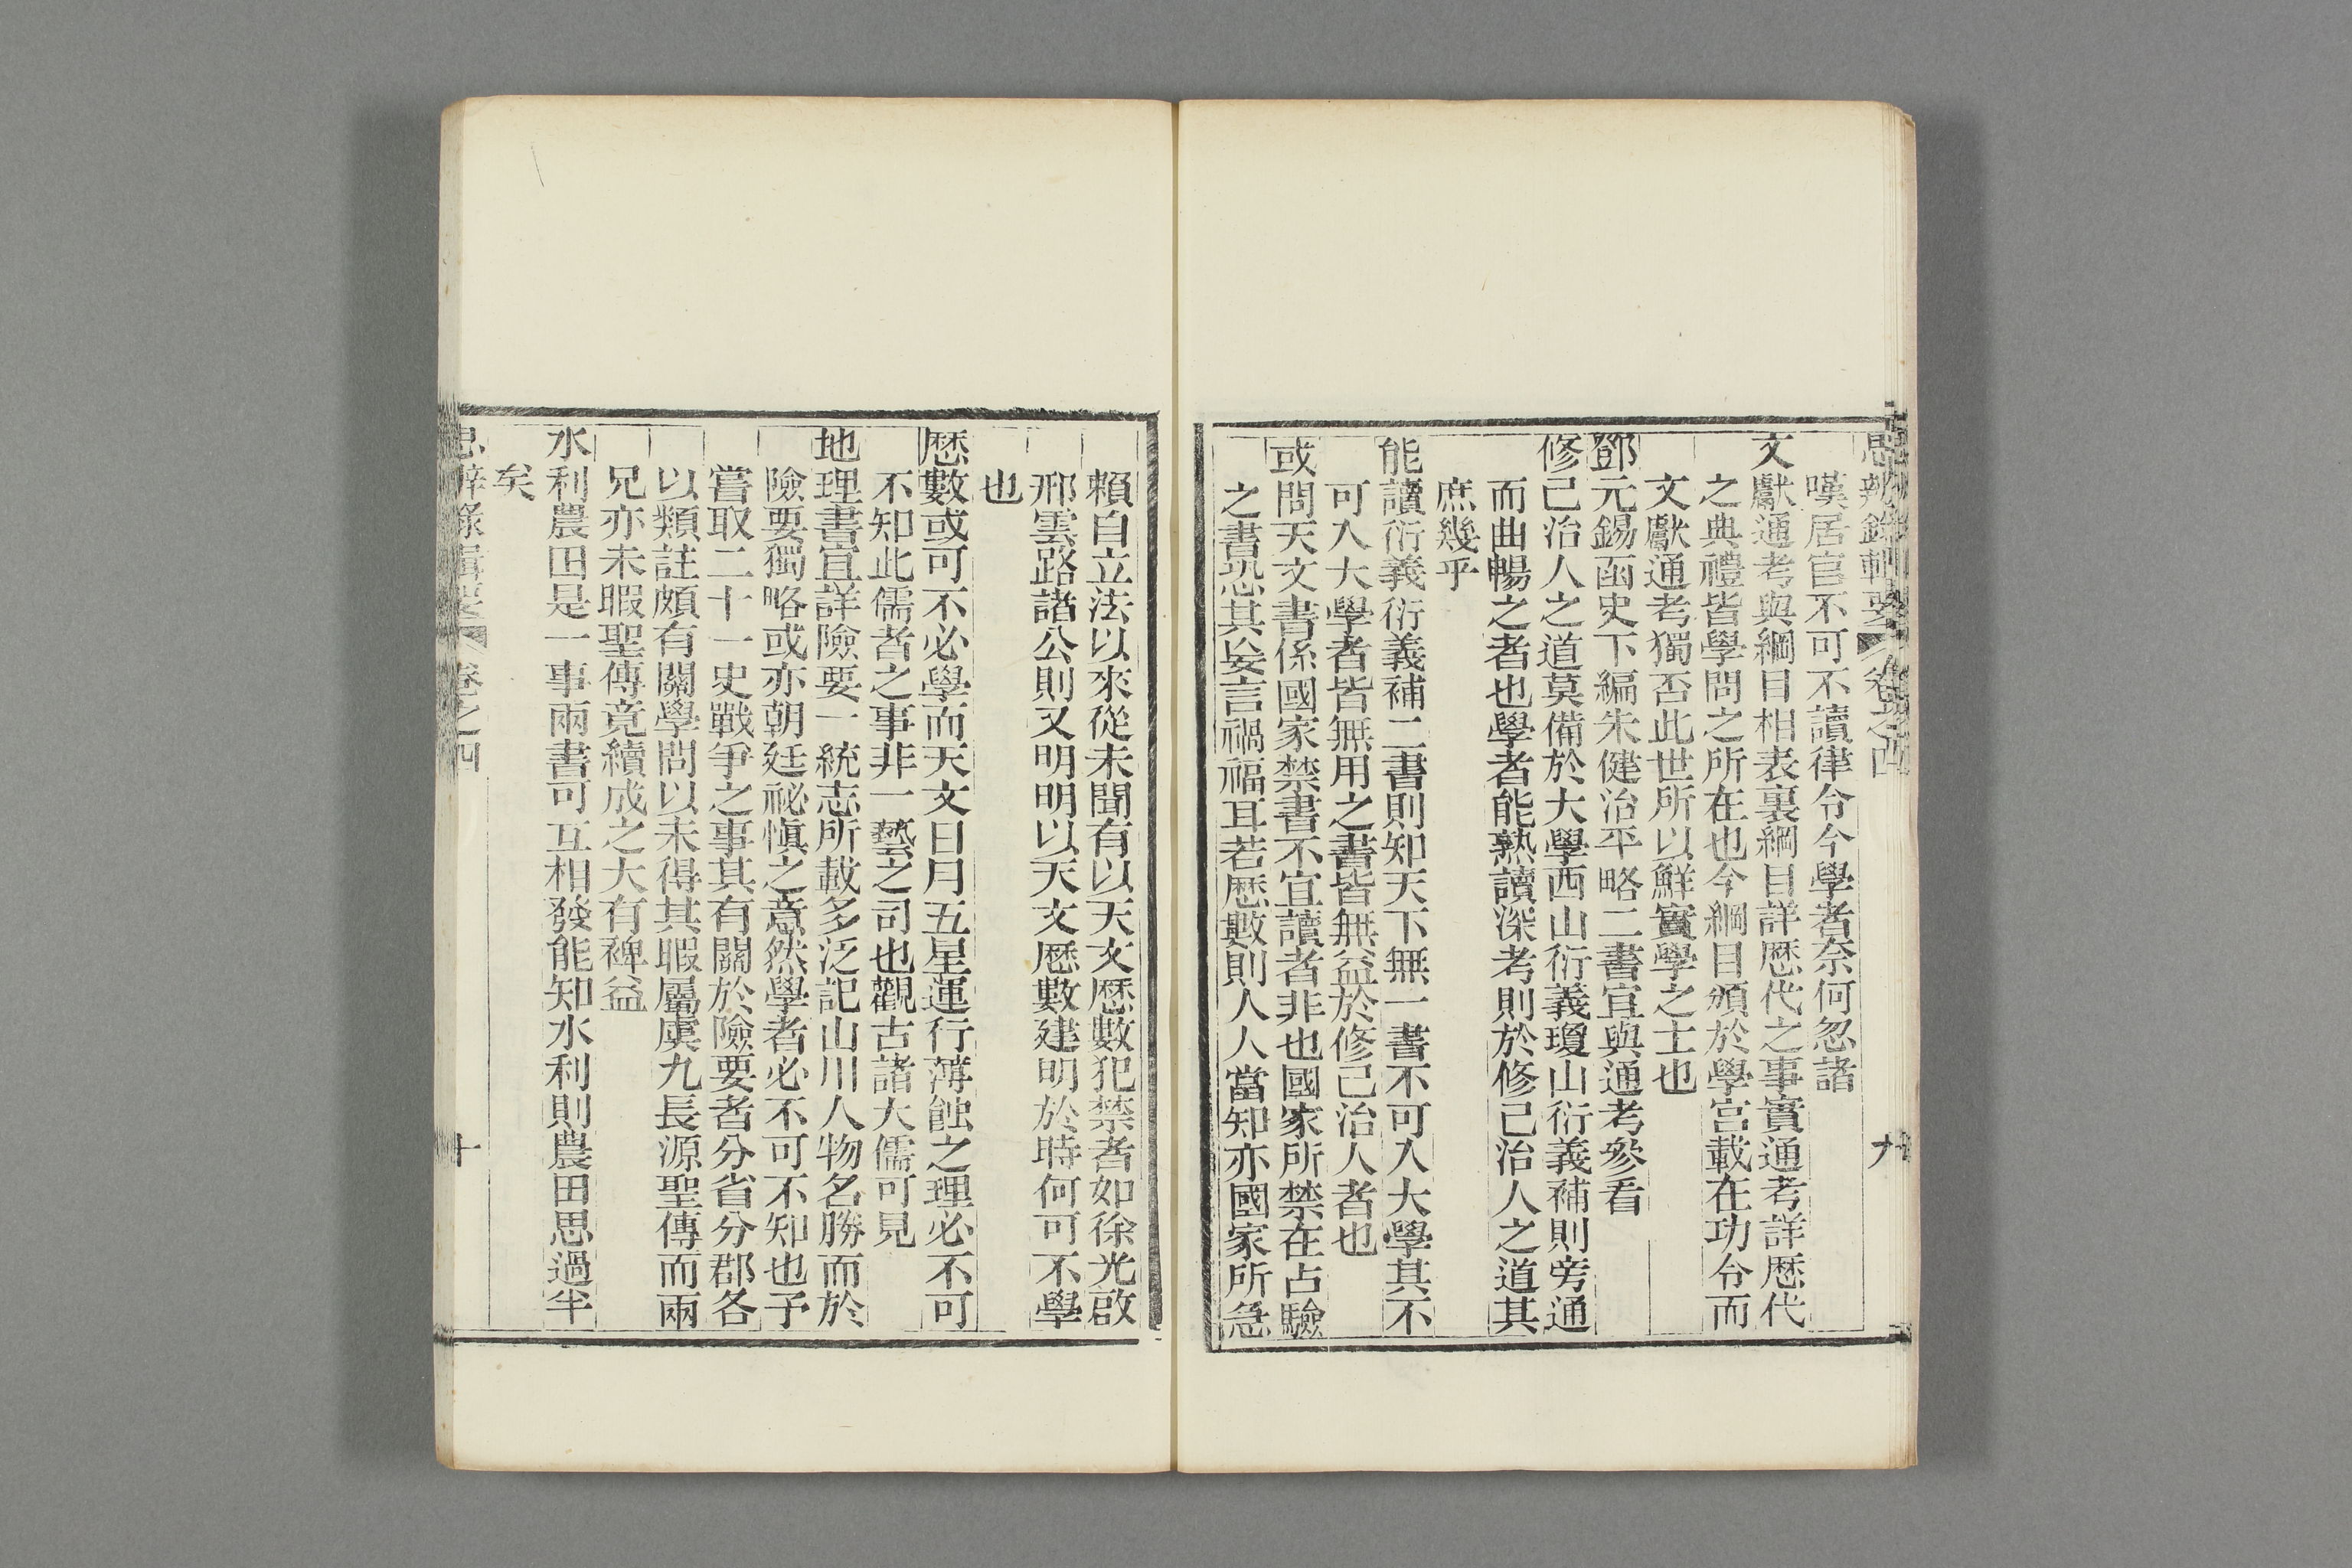 思辨錄輯要 卷之四 九
嘆居官不可不讀律令今學者奈何忽諸
文獻通考與綱目相表裏綱目詳歴代之事實通考詳歴代
之典禮皆學問之所在也今綱目頒於學宮載在功令而
文獻通考獨否此世所以鮮實學之士也
鄧元錫函史下編朱健治平略二書宜與通考參看
修己治人之道莫備於大學西山衍義瓊山衍義補則旁通
而曲暢之者也學者能熟讀深考則於修己治人之道其
庶幾乎
能讀衍義衍義補二書則知天下無一書不可入大學其不
可入大學者皆無用之書皆無益於修己治人者也
或問天文書係國家禁書不宜讀者非也國家所禁在占驗
之書恐其妄言禍福耳若歴數則人人當知亦國家所急
賴自立法以來從未聞有以天文歴數犯禁者如徐光啟
邢雲路諸公則又明明以天文歴數建明於時何可不學
也
歴數或可不必學而天文日月五星運行薄蝕之理必不可
不知此儒者之事非一藝之司也觀古諸大儒可見
地理書宜詳險要一統志所載多泛記山川人物名勝而於
險要獨略或亦朝廷祕慎之意然學者必不可不知也予
嘗取二十一史戰爭之事其有關於險要者分省分郡各
以類註頗有關學問以未得其暇屬虞九長源聖傳而兩
兄亦未暇聖傳竟續成之大有裨益
水利農田是一事兩書可互相發能知水利則農田思過半
矣
思辨錄輯要 卷之四 十